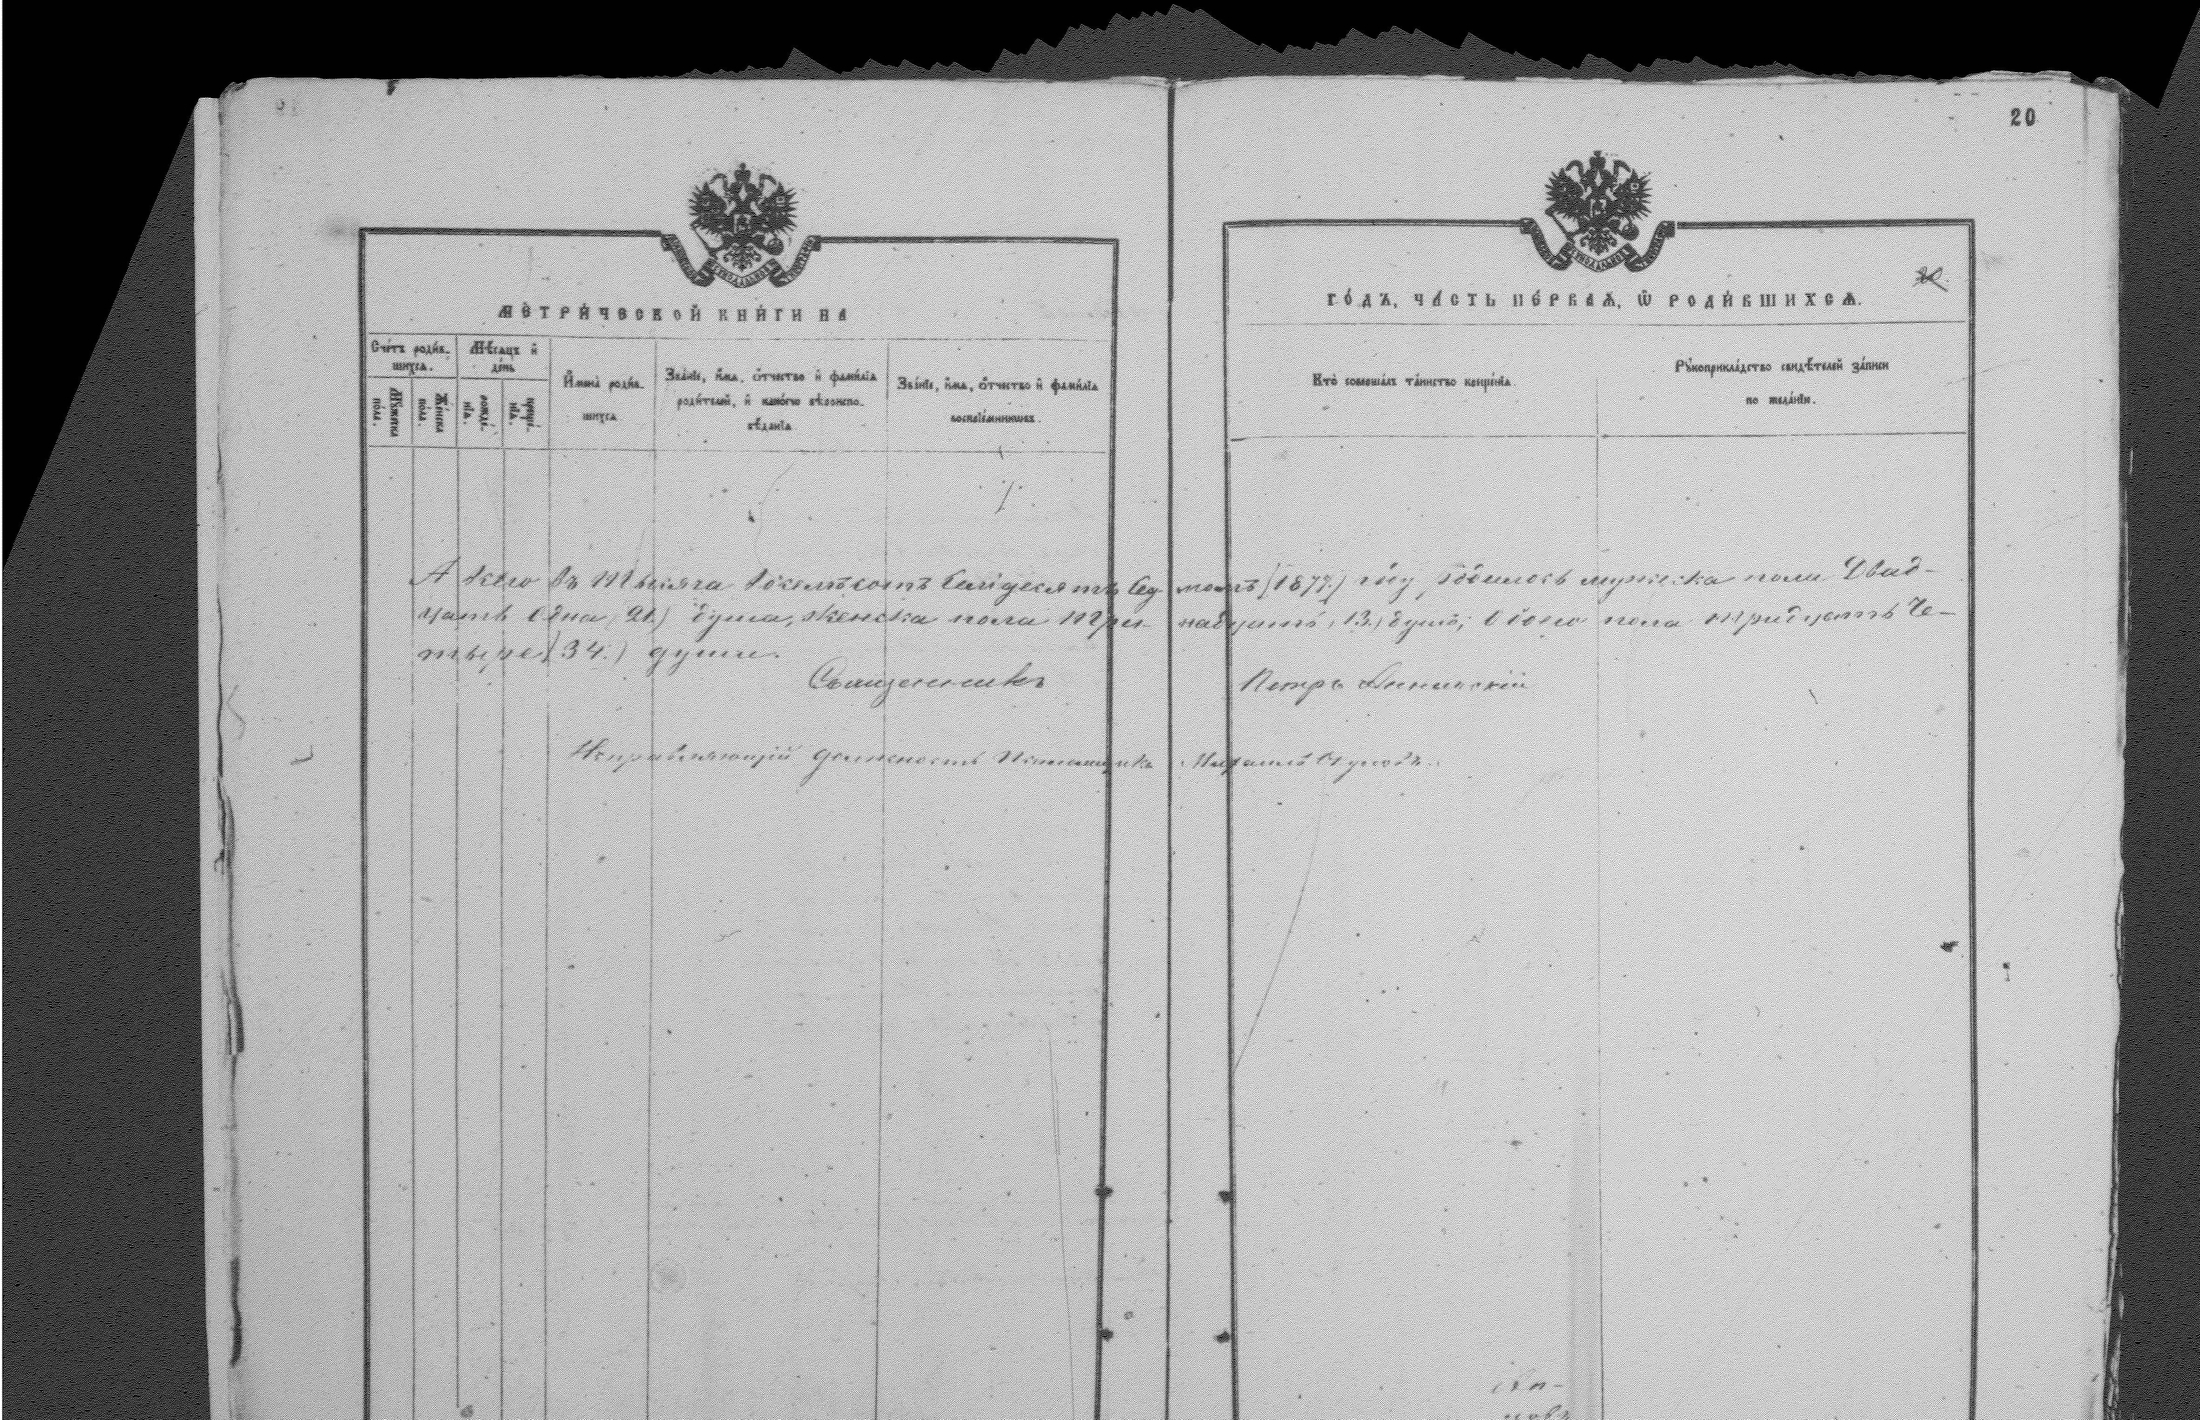 20
20
МЕТРИ́ЧЕСКОЙ КНИ́ГИ НА
ГО́ДЪ, ЧА́СТЬ ПЕ́РВАѦ, Ѿ РОДИ́ВШИХСѦ.
Сче́тъ роди́в-
шихсѧ.
Мꙋ́жеска
по́ла.
Же́нска
по́ла.
Мѣ́сѧцъ и҆
де́нь
рожде́-
нїѧ.
креще́-
нїѧ.
И҆мена̀ роди́в-
шихсѧ
Зва́нїе, и҆́мѧ, ѻ҆́тчество и҆ фами́лїѧ
роди́телей, и҆ како́гѡ вѣроиспо-
вѣ́данїѧ
Зва́нїе, и҆́мѧ, ѻ҆́тчество и҆ фами́лїѧ
воспрїе́мникѡвъ.
Кто̀ соверша́лъ та́инство креще́нїѧ.
Рꙋкоприкла́дство свидѣ́телей за́писи
по жела́нїю.
А всего въ Тысяча восемьсотъ Семдесятъ Сед- момъ (1877.) году родилось мужеска пола Двад-
цать одна (21.) душа, женска пола Три- надцать (13.) душъ, обоего пола тридцать Че-
тыре (34.) души.
Священникъ Петръ
Исправляющій должность Псаломщика Михаилъ